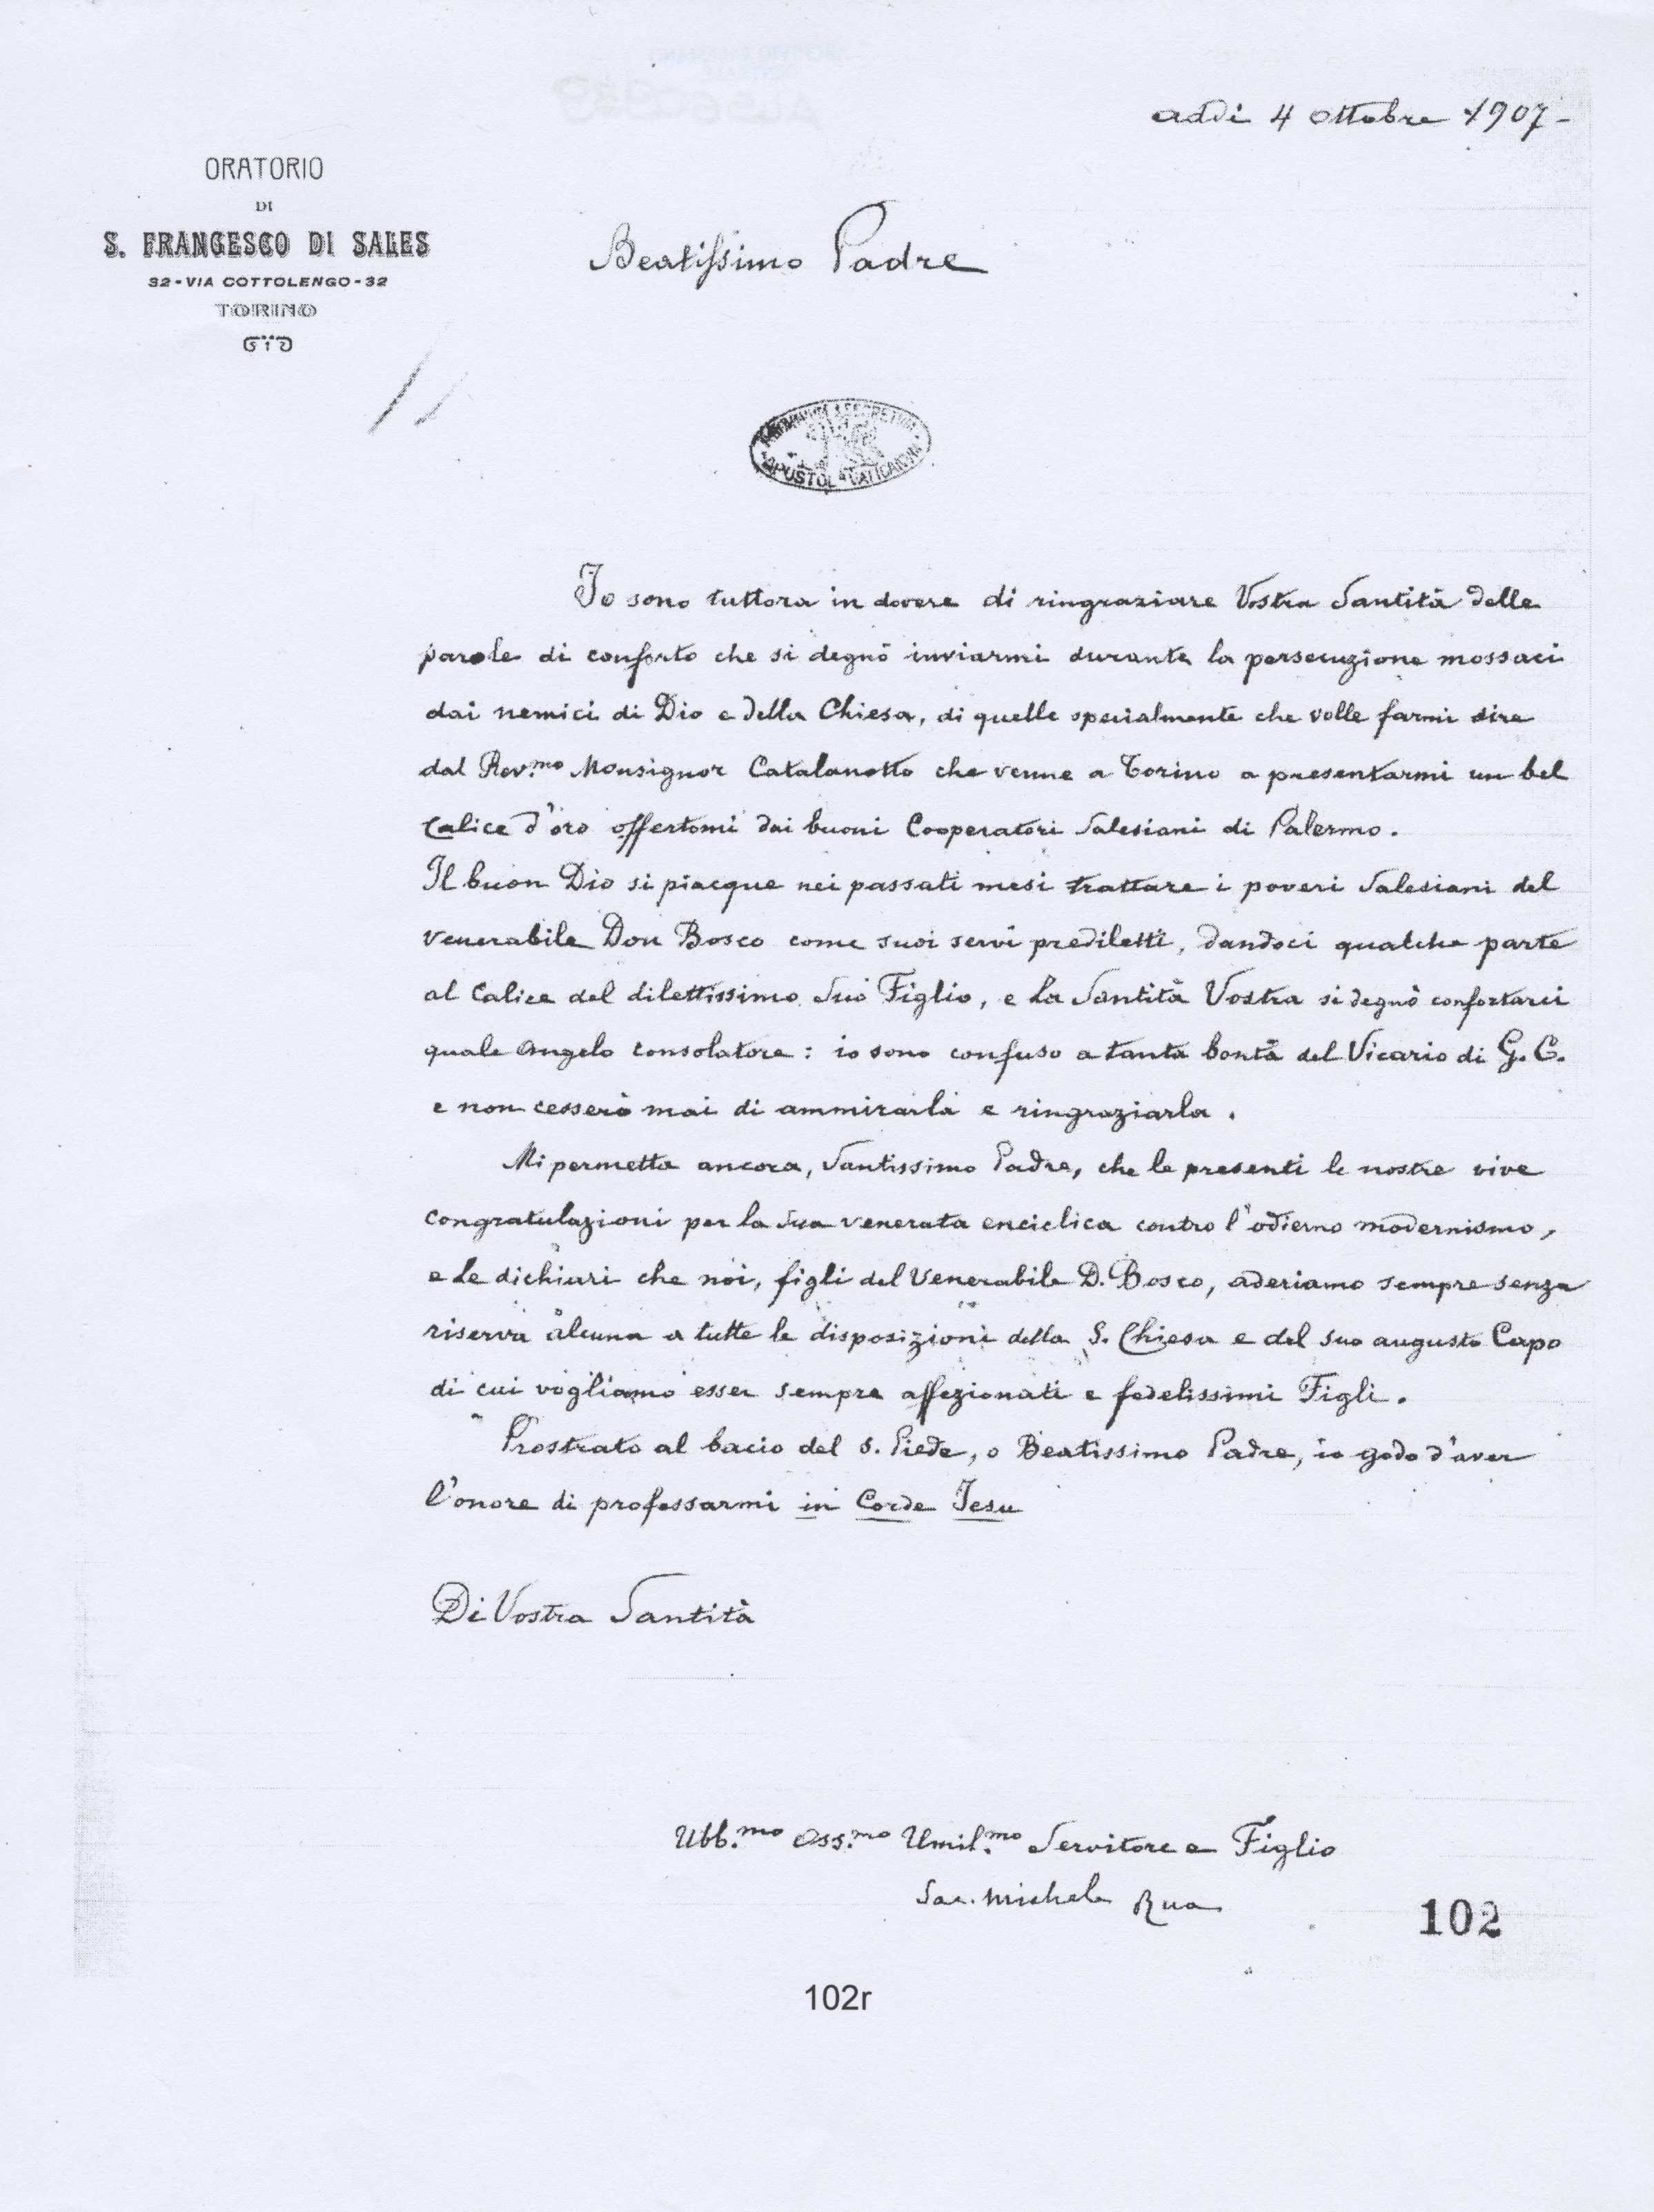 addì 4 Ottobre 1907-
ORATORIO
DI
S. FRANCESCO DI SALES
32-VIA COTTOLENGO-32
TORINO
Beatissimo Padre
Io sono tuttora in dovere di ringraziare Vostra Santità delle
parole di conforto che si degnò inviarmi durante la persecuzione mossaci
dai nemici di Dio e della Chiesa, di quelle specialmente che volle farmi dire
dal Rev.mo Monsignor Catalanotto che venne a Torino a presentarmi un bel
Calice d'oro offertomi dai buoni Cooperatori Salesiani di Palermo.
Il buon Dio si piacque nei passati mesi trattare i poveri Salesiani del
Venerabile Don Bosco come suoi servi prediletti, dandoci qualche parte
al Calice del dilettissimo Suo Figlio, e La Santità Vostra si degnò confortarci
quale Angelo Consolatore: io sono confuso a tanta bontà del Vicario di G. C.
e non cesserò mai di ammirarla e ringraziarla.
Mi permetta ancora, Santissimo Padre, che le presenti le nostre vive
congratulazioni per la Sua venerata enciclica contro l'odierno modernismo,
e Le dichiari che noi, figli del Venerabile D. Bosco, aderiamo sempre senza
riserva alcuna a tutte le disposizioni della S. Chiesa e del suo augusto Capo
di cui vogliamo esser sempre affezionati e fedelissimi Figli.
Prostrato al bacio del S. Piede, o Beatissimo Padre, io godo d'aver
l'onore di professarmi in Corde Jesu
Di Vostra Santità
Ubb.mo Oss.mo Umil.mo Servitore e Figlio
Sac. Michele Rua
102
102r